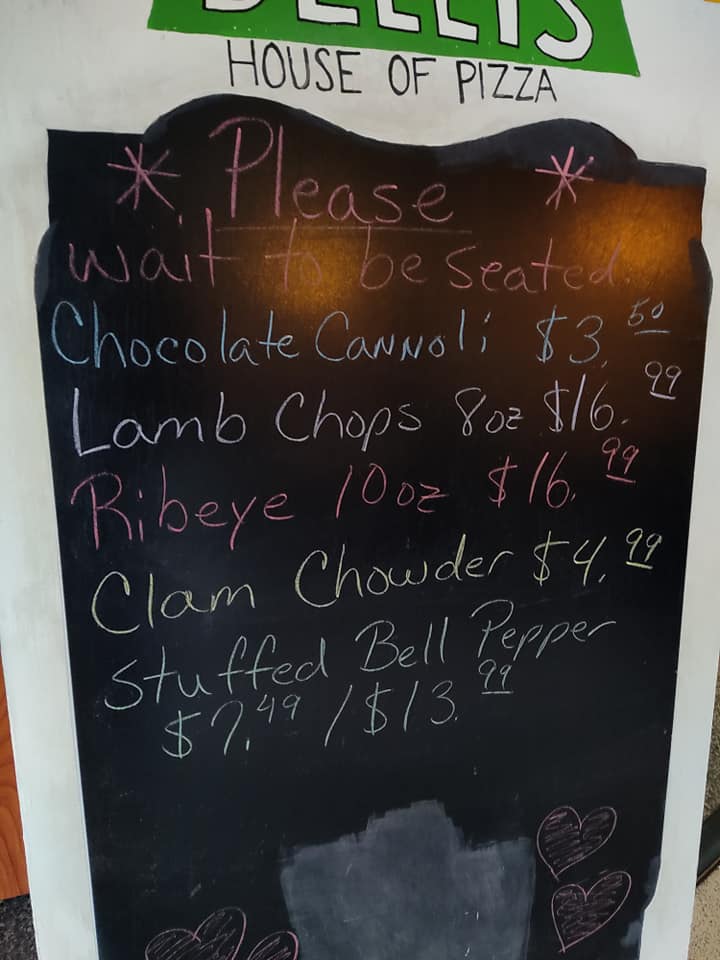 HOUSE OF PIZZA
* Please *
wait to be seated
Chocolate Cannoli $3.50
Lamb Chops 8oz $16.99
Ribeye 10oz $16.99
Clam Chowder $4.99
Stuffed Bell Pepper
$7.49 / $13.99